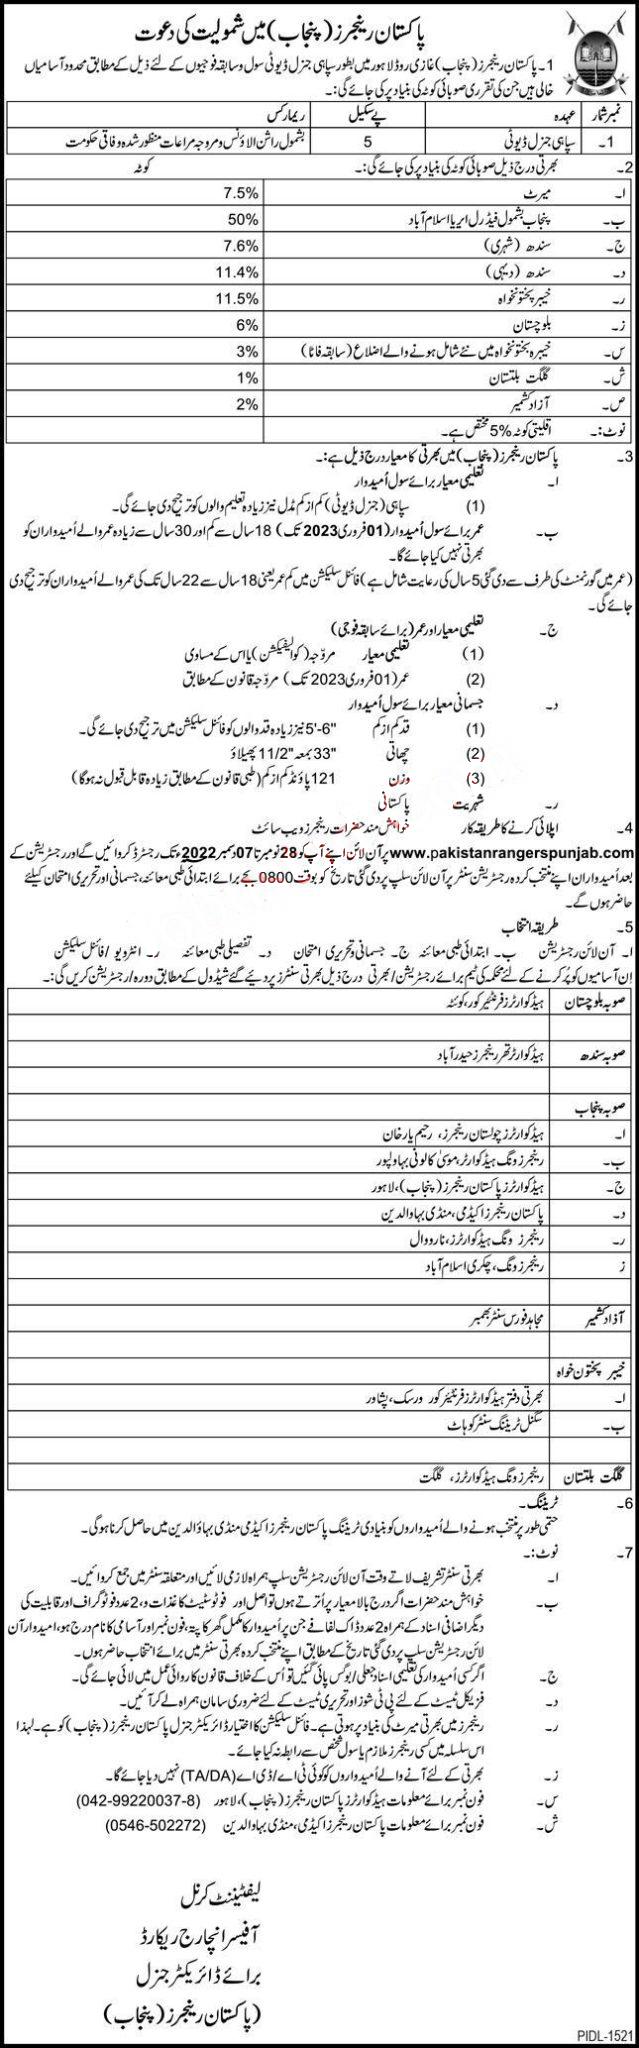 پاکستان رینجرز (پنجاب) میں شمولیت کی دعوت
1۔ پاکستان رینجرز (پنجاب) غازی روڈ لاہور میں بطور سپاہی جنرل ڈیوٹی سول و سابقہ فوجیوں کے لئے ذیل کے مطابق محدود آسامیاں
خالی ہیں جن کی تقرری صوبائی کوٹہ کی بنیاد پر کی جائے گی:۔
نمبر شمار عہدہ پے سکیل ریمارکس
1۔ سپاہی جنرل ڈیوٹی 5 بشمول راشن الاؤنس و مروجہ مراعات منظور شدہ وفاقی حکومت
2۔ بھرتی درج ذیل صوبائی کوٹہ کی بنیاد پر کی جائے گی:۔ کوٹہ
ا۔ میرٹ 7.5%
ب۔ پنجاب بشمول فیڈرل ایریا اسلام آباد 50%
ج۔ سندھ (شہری) 7.6%
د۔ سندھ (دیہی) 11.4%
ر۔ خیبر پختونخواہ 11.5%
ز۔ بلوچستان 6%
س۔ خیبرہ پختونخواہ میں نئے شامل ہونے والے اضلاع (سابقہ فاٹا) 3%
ش۔ گلگت بلتستان 1%
ص۔ آزاد کشمیر 2%
نوٹ:۔ اقلیتی کوٹہ 5% مختص ہے۔
3۔ پاکستان رینجرز (پنجاب) میں بھرتی کا معیار درج ذیل ہے:۔
ا۔ تعلیمی معیار برائے سول اُمیدوار
(1) سپاہی (جنرل ڈیوٹی) کم از کم مڈل نیز زیادہ تعلیم والوں کو ترجیح دی جائے گی۔
ب۔ عمر برائے سول اُمیدوار (01 فروری 2023 تک) 18 سال سے کم اور 30 سال سے زیادہ عمر والے اُمیدواران کو
بھرتی نہیں کیا جائے گا۔
(عمر میں گورنمنٹ کی طرف سے دی گئی 5 سال کی رعایت شامل ہے) فائنل سلیکشن میں کم عمر یعنی 18 سال سے 22 سال تک کی عمر والے اُمیدواران کو ترجیح دی
جائے گی۔
ج۔ تعلیمی معیار اور عمر (برائے سابقہ فوجی)
(1) تعلیمی معیار مروّجہ (کوالیفیکیشن) یا اس کے مساوی
(2) عمر (01 فروری 2023 تک) مروّجہ قانون کے مطابق
د۔ جسمانی معیار برائے سول اُمیدوار
(1) قد کم از کم 5'-6" نیز زیادہ قد والوں کو فائنل سلیکشن میں ترجیح دی جائے گی۔
(2) چھاتی 33" بمعہ 11/2" پھیلاؤ
(3) وزن 121 پاؤنڈ کم از کم (طبی قانون کے مطابق زیادہ قابل قبول نہ ہوگا)
ر۔ شہریت پاکستانی
4۔ اپلائی کرنے کا طریقہ کار خواہش مند حضرات رینجرز ویب سائٹ
www.pakistanrangerspunjab.com پر آن لائن اپنے آپ کو 28 نومبر تا 07 دسمبر 2022ء تک رجسٹرڈ کروائیں گے اور رجسٹریشن کے
بعد اُمیدواران اپنے منتخب کردہ رجسٹریشن سنٹر پر آن لائن سلپ پر دی گئی تاریخ کو بوقت 0800 بجے برائے ابتدائی طبی معائنہ، جسمانی اور تحریری امتحان کیلئے
حاضر ہوں گے۔
5۔ طریقہ انتخاب
ا۔ آن لائن رجسٹریشن ب۔ ابتدائی طبی معائنہ ج۔ جسمانی و تحریری امتحان د۔ تفصیلی طبی معائنہ ر۔ انٹرویو / فائنل سلیکشن
اِن آسامیوں کو پُر کرنے کے لئے محکمہ کی ٹیم برائے رجسٹریشن / بھرتی درج ذیل بھرتی سنٹرز پر دیئے گئے شیڈول کے مطابق دورہ / رجسٹریشن کریں گی:۔
صوبہ بلوچستان ہیڈ کوارٹرز فرنٹیئر کور، کوئٹہ
صوبہ سندھ ہیڈ کوارٹر تھر رینجرز حیدرآباد
صوبہ پنجاب
ا۔ ہیڈ کوارٹرز چولستان رینجرز، رحیم یار خان
ب۔ رینجرز ونگ ہیڈ کوارٹر، موسیٰ کالونی بہاولپور
ج۔ ہیڈ کوارٹرز پاکستان رینجرز (پنجاب)، لاہور
د۔ پاکستان رینجرز اکیڈمی، منڈی بہاوالدین
ر۔ رینجرز ونگ ہیڈ کوارٹرز، نارووال
ز رینجرز ونگ، چکری اسلام آباد
آذاد کشمیر مجاہد فورس سنٹر بھمبر
خیبر پختون خواہ
ا۔ بھرتی دفتر ہیڈ کوارٹرز فرنٹیئر کور ورسک، پشاور
ب۔ سگنل ٹریننگ سنٹر کوہاٹ
گلگت بلتستان رینجرز ونگ ہیڈ کوارٹرز، گلگت
6۔ ٹریننگ۔
حتمی طور پر منتخب ہونے والے اُمیدواروں کو بنیادی ٹریننگ پاکستان رینجرز اکیڈمی منڈی بہاؤالدین میں حاصل کرنا ہوگی۔
7۔ نوٹ:۔
ا۔ بھرتی سنٹر تشریف لاتے وقت آن لائن رجسٹریشن سلپ ہمراہ لازمی لائیں اور متعلقہ سنٹر میں جمع کروائیں۔
ب۔ خواہش مند حضرات اگر درج بالا معیار پر اُترتے ہوں تو اصل اور فوٹو سٹیٹ کاغذات و، 2 عدد فوٹو گراف اور قابلیت کی
دیگر اضافی اسناد کے ہمراہ 2 عدد ڈاک لفافے جن پر اُمیدوار کا مکمل گھر کا پتہ، فون نمبر اور آسامی کا نام درج ہو، امیدوار آن
لائن رجسٹریشن سلپ پر دی گئی تاریخ کے مطابق اپنے منتخب کردہ بھرتی سنٹر میں برائے انتخاب حاضر ہوں۔
ج۔ اگر کسی اُمیدوار کی تعلیمی اسناد جعلی / بوگس پائی گئیں تو اُس کے خلاف قانونی کاروائی عمل میں لائی جائے گی۔
د۔ فزیکل ٹیسٹ کے لئے پی ٹی شوز اور تحریری ٹیسٹ کے لئے ضروری سامان ہمراہ لے کر آئیں۔
ر۔ رینجرز میں بھرتی میرٹ کی بنیاد پر ہوتی ہے۔ فائنل سلیکشن کا اختیار ڈائریکٹر جنرل پاکستان رینجرز (پنجاب) کو ہے۔ لہذا
اس سلسلہ میں کسی رینجرز ملازم یا سول شخص سے رابطہ نہ کیا جائے۔
ز۔ بھرتی کے لئے آنے والے اُمیدواروں کو کوئی ٹی اے / ڈی اے (TA/DA) نہیں دیا جائے گا۔
س۔ فون نمبر برائے معلومات ہیڈ کوارٹرز پاکستان رینجرز (پنجاب)، لاہور (042-99220037-8)
ش۔ فون نمبر برائے معلومات پاکستان رینجرز اکیڈمی، منڈی بہاوالدین (0546-502272)
لیفٹیننٹ کرنل
آفیسر انچارج ریکارڈ
برائے ڈائریکٹر جنرل
(پاکستان رینجرز (پنجاب)
PIDL-1521